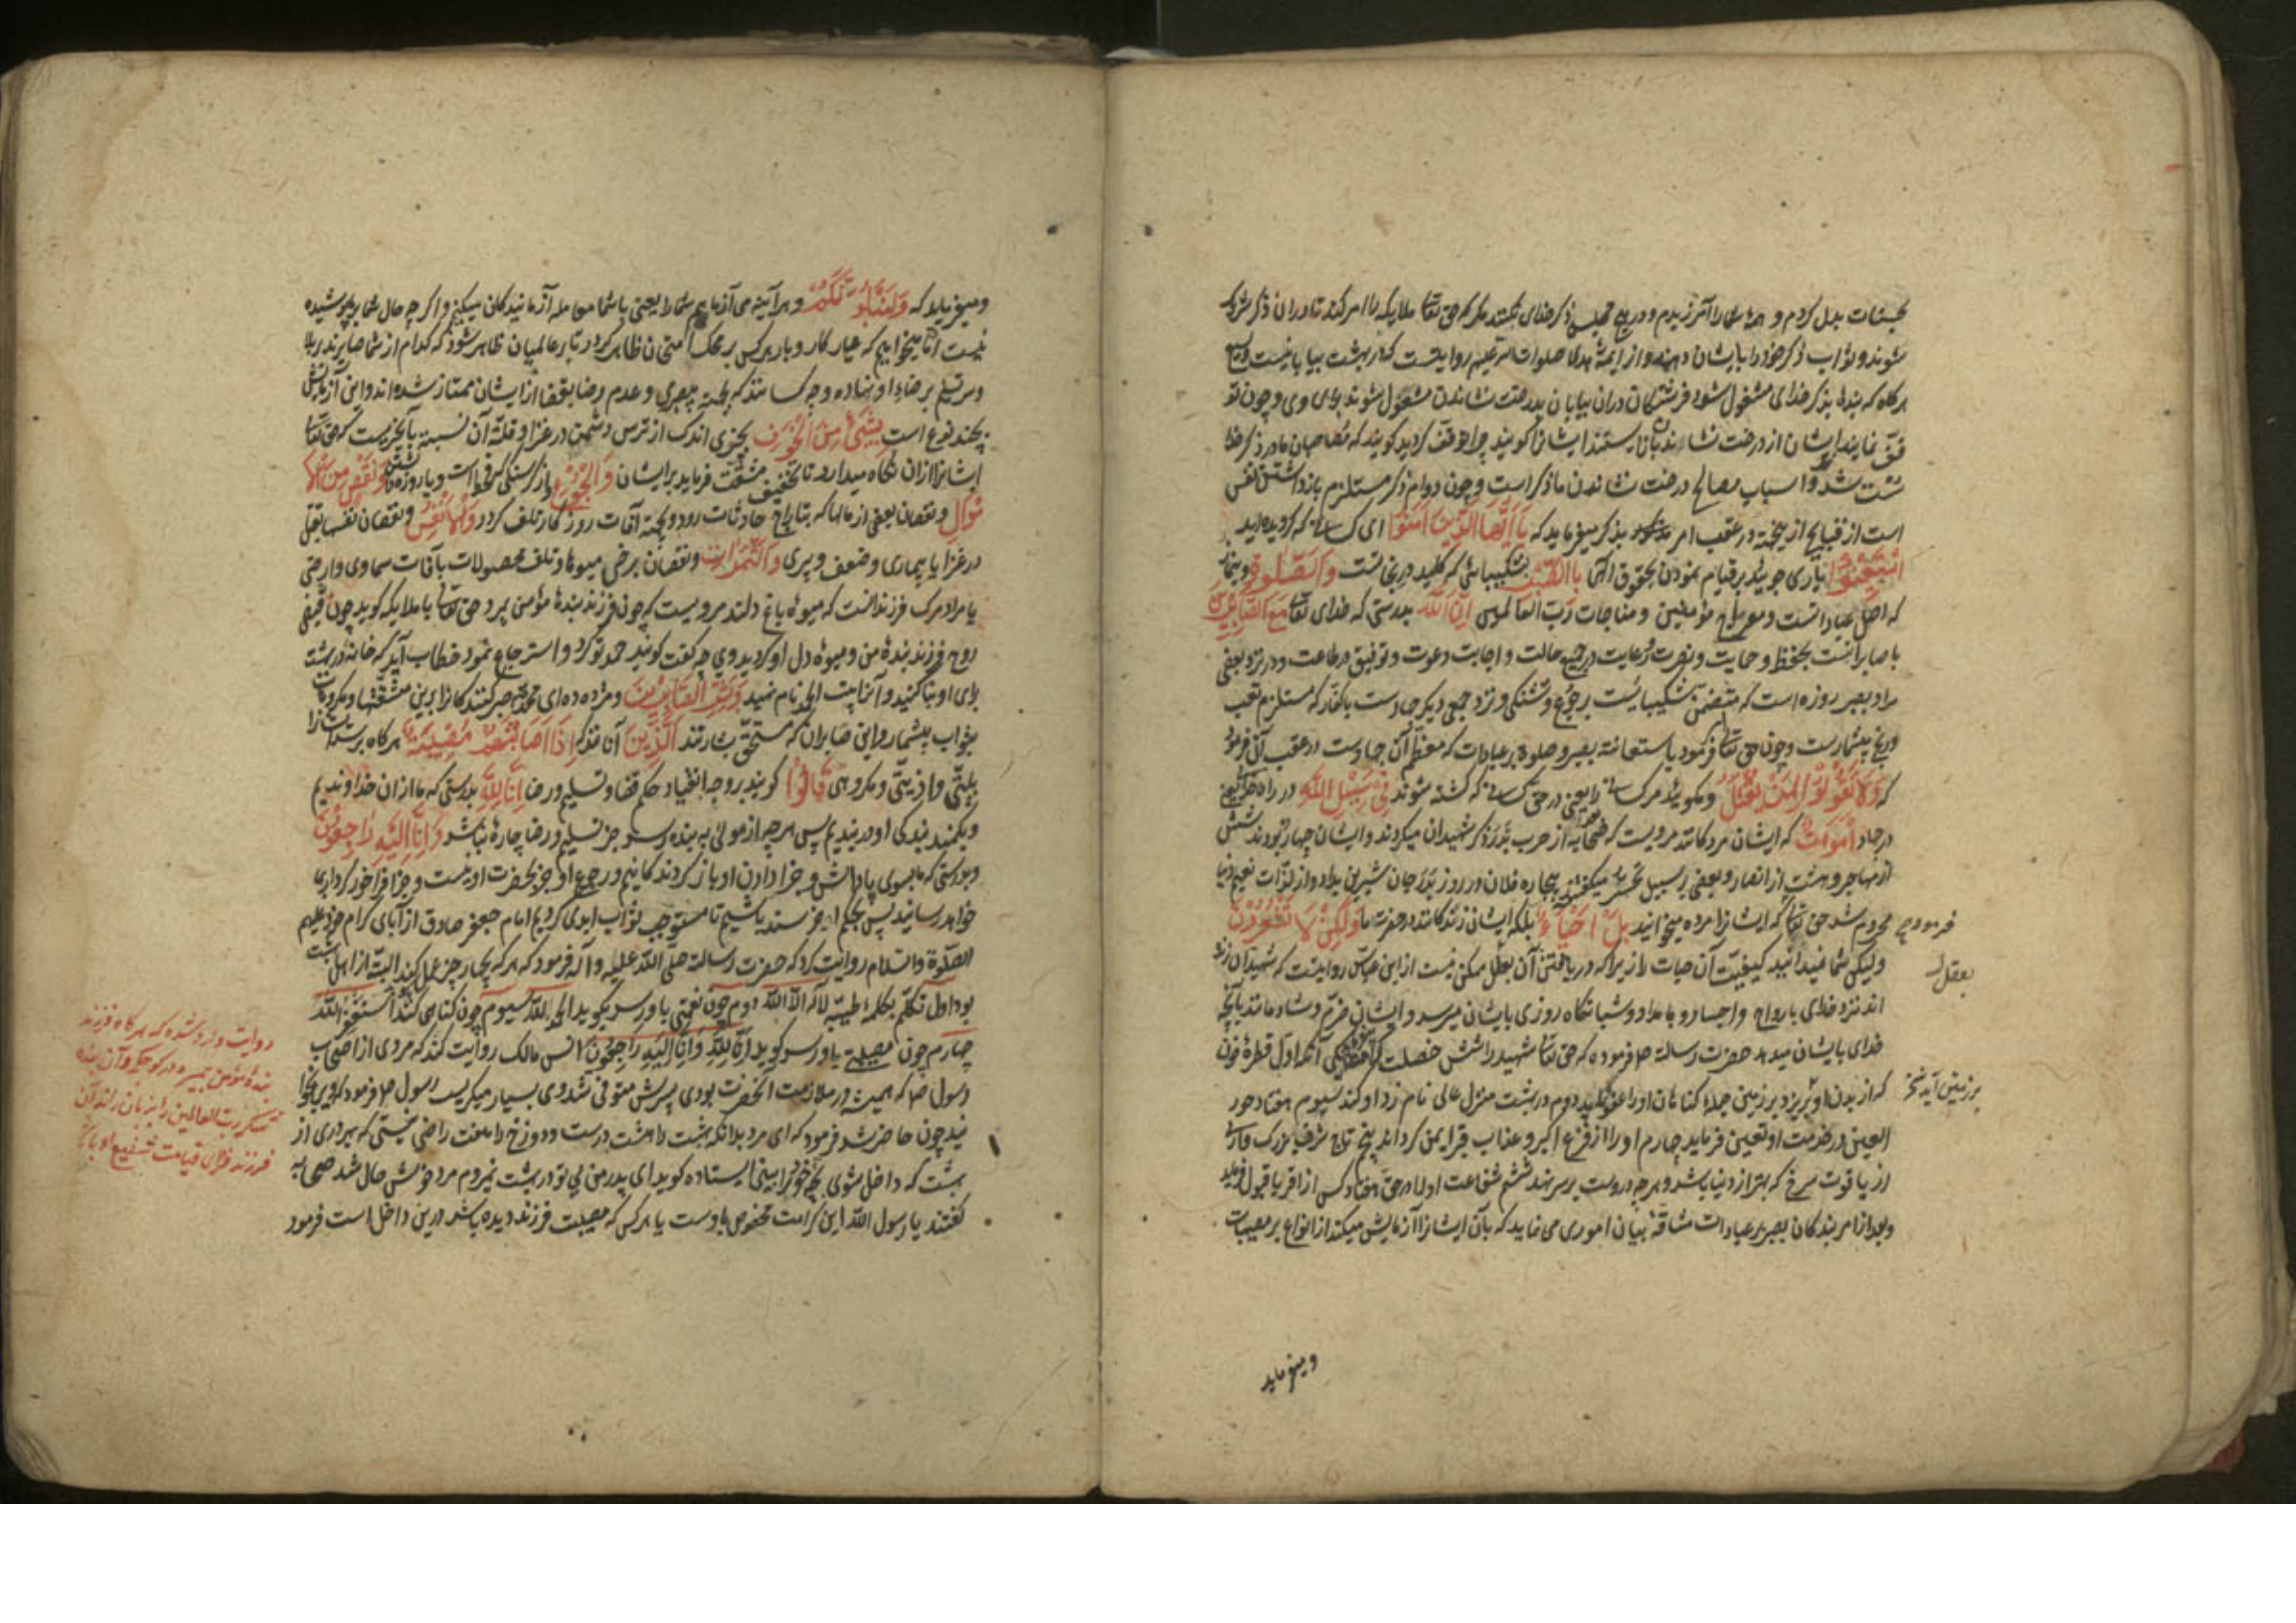 بحسنات بدل کردم و همهٔ شما را آمرزیدم و در هیچ مجلسی ذکر خدای نکنند مگر که حق تعالی ملایکه را امر کند تا در آن ذکر شریک
شوند و ثواب ذکر خود را بایشان دهند و از ایمهٔ هدی صلوات الله علیهم روایتست که در بهشت بیابانیست وسیع
هرگاه که بنده بذکر خدای مشغول شود فرشتگان در آن بیابان بدرخت نشاندن مشغول شوند برای وی و چون توقف
نمایند ایشان از درخت نشاندن باز ایستند ایشانرا گویند چرا توقف کردید گویند که مصاحبان ما در ذکر خدا
سست شدند و اسباب مصالح درخت نشاندن ما ذکر است و چون دوام ذکر مستلزم بازداشتن نفس
است از قبایح ازینجهت در عقب امر بذکر میفرماید که یا ایها الذین امنوا ای کسانی که گرویده‌اید
استعینوا یاری جویید بر قیام نمودن بحقوق الهی بالصبر بشکیبایی که کلید در نجاتست والصلوة و بنماز
که اصل عباداتست و معراج مؤمنین و مناجات رب العالمین ان الله بدرستی که خدای تعالی مع الصابرین
با صابرانست بحفظ و حمایت و نصرت و رعایت در جمیع حالت و اجابت دعوت و توفیق در طاعت و در نزد بعضی
مراد بصبر روزه است که متضمن شکیباییست بر جوع و تشنگی و نزد جمعی دیگر جهادست با کفار که مستلزم تعب
و رنج بیشمارست و چون حق تعالی فرمود باستعانه بصبر و صلوة بر عبادات که معظم آن جهادست در عقب آن فرمود
که ولا تقولوا لمن یقتل و مگویید مر کسانی را یعنی در حق کسانی که کشته شوند فی سبیل الله در راه خدا یعنی
در جهاد اموات که ایشان مردگانند مرویست که صحابه از حرب بدر ذکر شهیدان میکردند و ایشان چهارده بودند شش
از مهاجر و هشت از انصار و بعضی بر سبیل تحسر میگفتند بیچاره فلان در روز بدر جان شیرین بداد و از لذات نعیم دنیا
محروم شد حق تعالی فرمود که ایشانرا مرده مخوانید بل احیاء بلکه ایشان زندگانند در حضرت ما ولکن لا تشعرون
ولیکن شما نمیدانید کیفیت آن حیات را زیرا که دریافتن آن بعقل ممکن نیست از ابن عباس روایتست که شهیدان زنده
اند نزد خدای بارواح و اجساد و بامداد و شبانگاه روزی بایشان میرسد و ایشان خرم و شاد مانند بآنچه
خدای بایشان میدهد حضرت رسالة ص فرموده که حق تعالی شهید را شش خصلت یکی آنکه اول قطرهٔ خون
که از بدن او بریزد بر زمین جمله گناهان او را عفو نماید دوم در بهشت منزل عالی نام زد او کند سیوم هفتاد حور
العین در خدمت او تعیین فرماید چهارم او را از فزع اکبر و عذاب قبر ایمن گرداند پنج تاج شرف بزرگ
از یاقوت سرخ که بهتر از دنیا باشد و هر چه دروست بر سر نهد ششم شفاعت او را در حق هفتاد کس از اقربا قبول فرماید
و بعد از امر بندگان بصبر بر عبادات شاقه بیان اموری می نماید که بآن ایشانرا آزمایش میکند از انواع مصیبات
فرمود
بعقل
بر زمین آید
و میفرماید
و میفرماید که ولنبلونکم و هر آینه می آزماییم شما را یعنی با شما معامله آزمایندگان میکنیم و اگر چه حال شما بر ما پوشیده
نیست اما میخواهیم که عیار کار و بار هر کس بر محک امتحان ظاهر گردد تا بر عالمیان ظاهر شود که کدام از شما صابرند در بلا
و سر تسلیم بر رضاء او نهاده و چه کسانند که بجهت بیصبری و عدم رضا بقضا از ایشان ممتاز شده‌اند و این آزمایش
بچند نوع است بشئ من الخوف بچیزی اندک از ترس دشمن در غزا و قلة آن نسبت بآنچیزیست که حق تعالی
ایشانرا از آن نگاه میدارد تا تخفیف مشقت فرماید بر ایشان والجوع و از گرسنگی که قحط است و یا روزه داشتن ونقص من الا
موال و نقصان بعضی از مالها که بتاراج حادثات رود و بجهة آفات روزگار تلف گردد والانفس و نقصان نفسها بقتل
در غزا یا بیماری و ضعف و پیری والثمرات و نقصان برخی میوها و تلف محصولات بآفات سماوی و ارضی
یا مراد مرگ فرزندانست که میوهٔ باغ دلند مرویست که چون فرزند بندهٔ مؤمن بمیرد حق تعالی با ملایکه گوید چون قبض
روح فرزند بندهٔ من و میوهٔ دل او کردید وی چه گفت گویند حمد تو کرد و استرجاع نمود خطاب آید که خانهٔ در بهشت
برای او بنا کنید و آنرا بیت الحمد نام نهید وبشر الصابرین و مژده ده ای محمد صبر کنندگانرا برین مشقتها و مکروهات
بثواب بیشمار و این صابران که مستحق بشارتند الذین آنانند که اذا اصابتهم مصیبة هرگاه برسد ایشانرا
بلیتی و اذیتی و مکروهی قالوا گویند بر وجه انقیاد حکم قضا و تسلیم و رضا انا لله بدرستی که ما از آن خداوندیم
و بکمند بندگی او در بندیم پس هر چه از مولی به بنده رسد جز تسلیم و رضا چارهٔ نباشد وانا الیه راجعون
و بدرستی که ما بسوی پاداش و جزا دادن او باز گردندگانیم و رجوع ما جز بحضرت او نیست و جزا فراخور کردار بما
خواهد رسانید پس بحکم او خرسند باشیم تا مستوجب ثواب ابدی گردیم امام جعفر صادق از آبای کرام خود علیهم
الصلوة والسلام روایت کرد که حضرت رسالة صلی الله علیه وآله فرمود که هر که بچهار چیز عمل کند البته از اهل بهشت
بود اول تکلم بکلمهٔ طیبهٔ لا اله الا الله دوم چون نعمتی باو رسد بگوید الحمد لله سیوم چون گناهی کند استغفر الله
چهارم چون مصیبتی باو رسد گوید انا لله وانا الیه راجعون انس مالک روایت کند که مردی از اصحاب
رسول ص که همیشه در ملازمت آنحضرت بودی پسرش متوفی شد وی بسیار میگریست رسول ص فرمود که ویرا بخوا
نید چون حاضر شد فرمود که ای مرد بدانکه بهشت را هشت درست و دوزخ را هفت راضی نیستی که بهر دری از
بهشت که داخل شوی بچهٔ خود را بینی ایستاده گوید ای پدر من بی تو در بهشت نمیروم مرد خوش حال شد صحابه
گفتند یا رسول الله این کرامت مخصوص باوست یا هر کس که مصیبت فرزند دیده باشد درین داخل است فرمود
روایت وارد شده که هرگاه فرزند
بندهٔ مؤمن بمیرد و آن بنده
شکر رب العالمین را بزبان راند آن
فرزند در قیامت شفیع او باشد